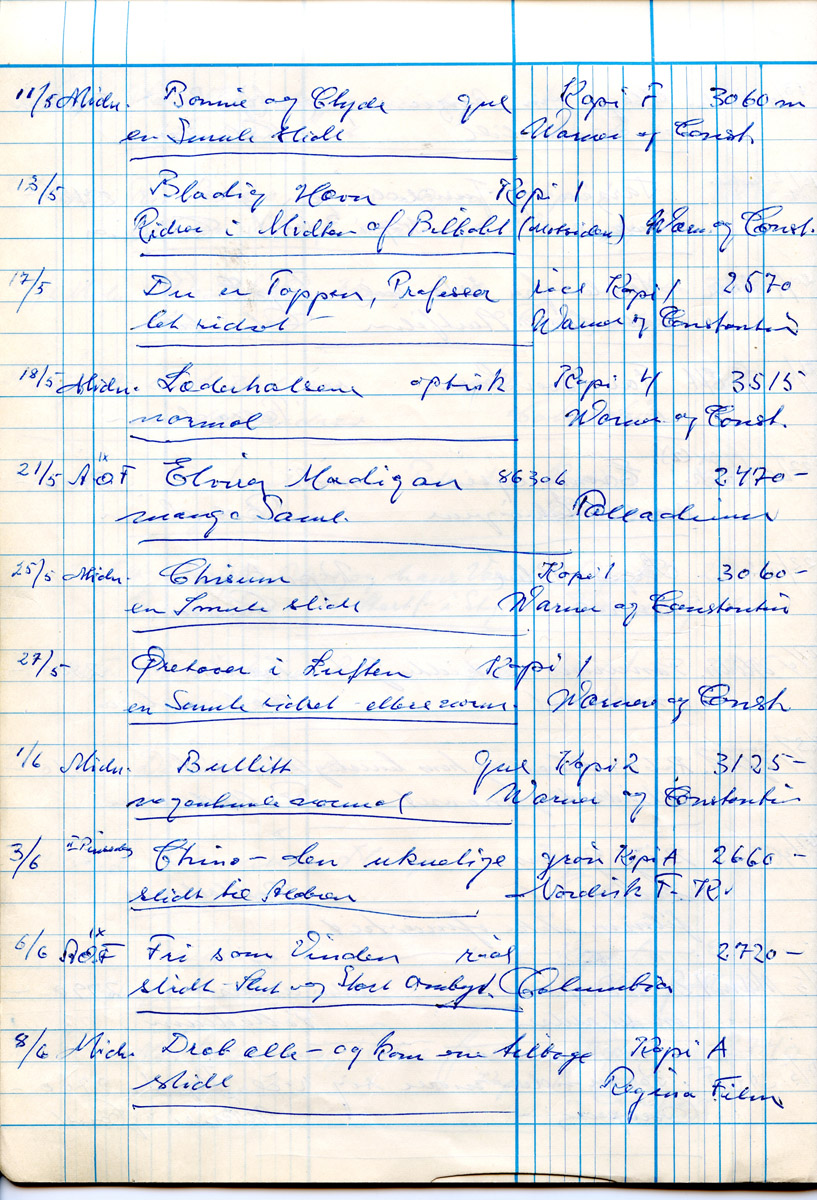 11/5 Midn. Bonnie og Clyde gul Kopi F 3060 m
en Smule slidt Warner og Const.
13/5 Blodig Hævn Kopi 1
Ridser i Midten af Billedet (Motsiden) Warn og Const.
17/5 Du er Toppen, Professor rød Kopi 1 2570
let ridset Warner og Constantin
18/5 Midn. Læderhalsene optisk Kopi 4 3515
normal Warner og Const.
21/5 AOF Elvira Madigan 86306 2470-
mange Saml. Palladium
25/5 Midn. Chisum Kopi 1 3060-
en Smule slidt Warner og Constantin
27/5 i Luften Kopi 1
en Smule ridset ellers norm. Warner og Const
1/6 Midn. Bullitt gul Kopi 2 3125-
nogenlunde normal Warner og Constantin
3/6 II Pinsedag Chino - den ukuelige grøn Kopi A 2660-
slidt til Nordisk F. K.
6/6 AOF Fri som Vinden rød 2720-
slidt - Slut og Start ombyt. Columbia
8/6 Midn. Dræb alle - og kom ene tilbage Kopi A
slidt Regina Film